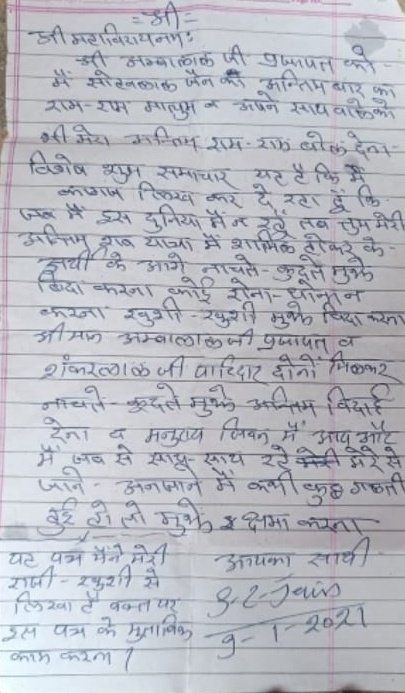 =श्री=
श्री महाविरायनमः
श्री अम्बालाल जी प्रजापत को
मैं सोहनलाल जैन का अन्तिम बार का
राम-राम मालुम व अपने साथ वाले को
भी मेरा अन्तिम राम-राम बोल देना-
विशेष शुभ समाचार यह है कि मैं
कागज लिख कर दे रहा हूँ कि
जब मैं इस दुनिया में न रहूँ तब तुम मेरी
अन्तिम शव यात्रा में शामिल होकर के-
अर्थी के आगे नाचते-कुदते मुझे
बिदा करना कोई रोना-धोना न
करना खुशी-खुशी मुझे विदा करना
श्रीमान अम्बालाल जी प्रजापत व
शंकरलाल जी पाटिदार दोनों मिलकर
नाचते-कुदते मुझे अन्तिम विदाई
देना व मनुष्य जिवन में आप और
मैं जब से साथ-साथ रहे मेरे से
जाने-अनजाने में कभी कुछ गलती
हुई हो तो मुझे क्षमा करना
यह पत्र मैंने मेरी
राजी-खुशी से
लिखा है वक्त पर
इस पत्र के मुताबिक
काम करना।
आपका साथी
S-L-Jain
9-1-2021